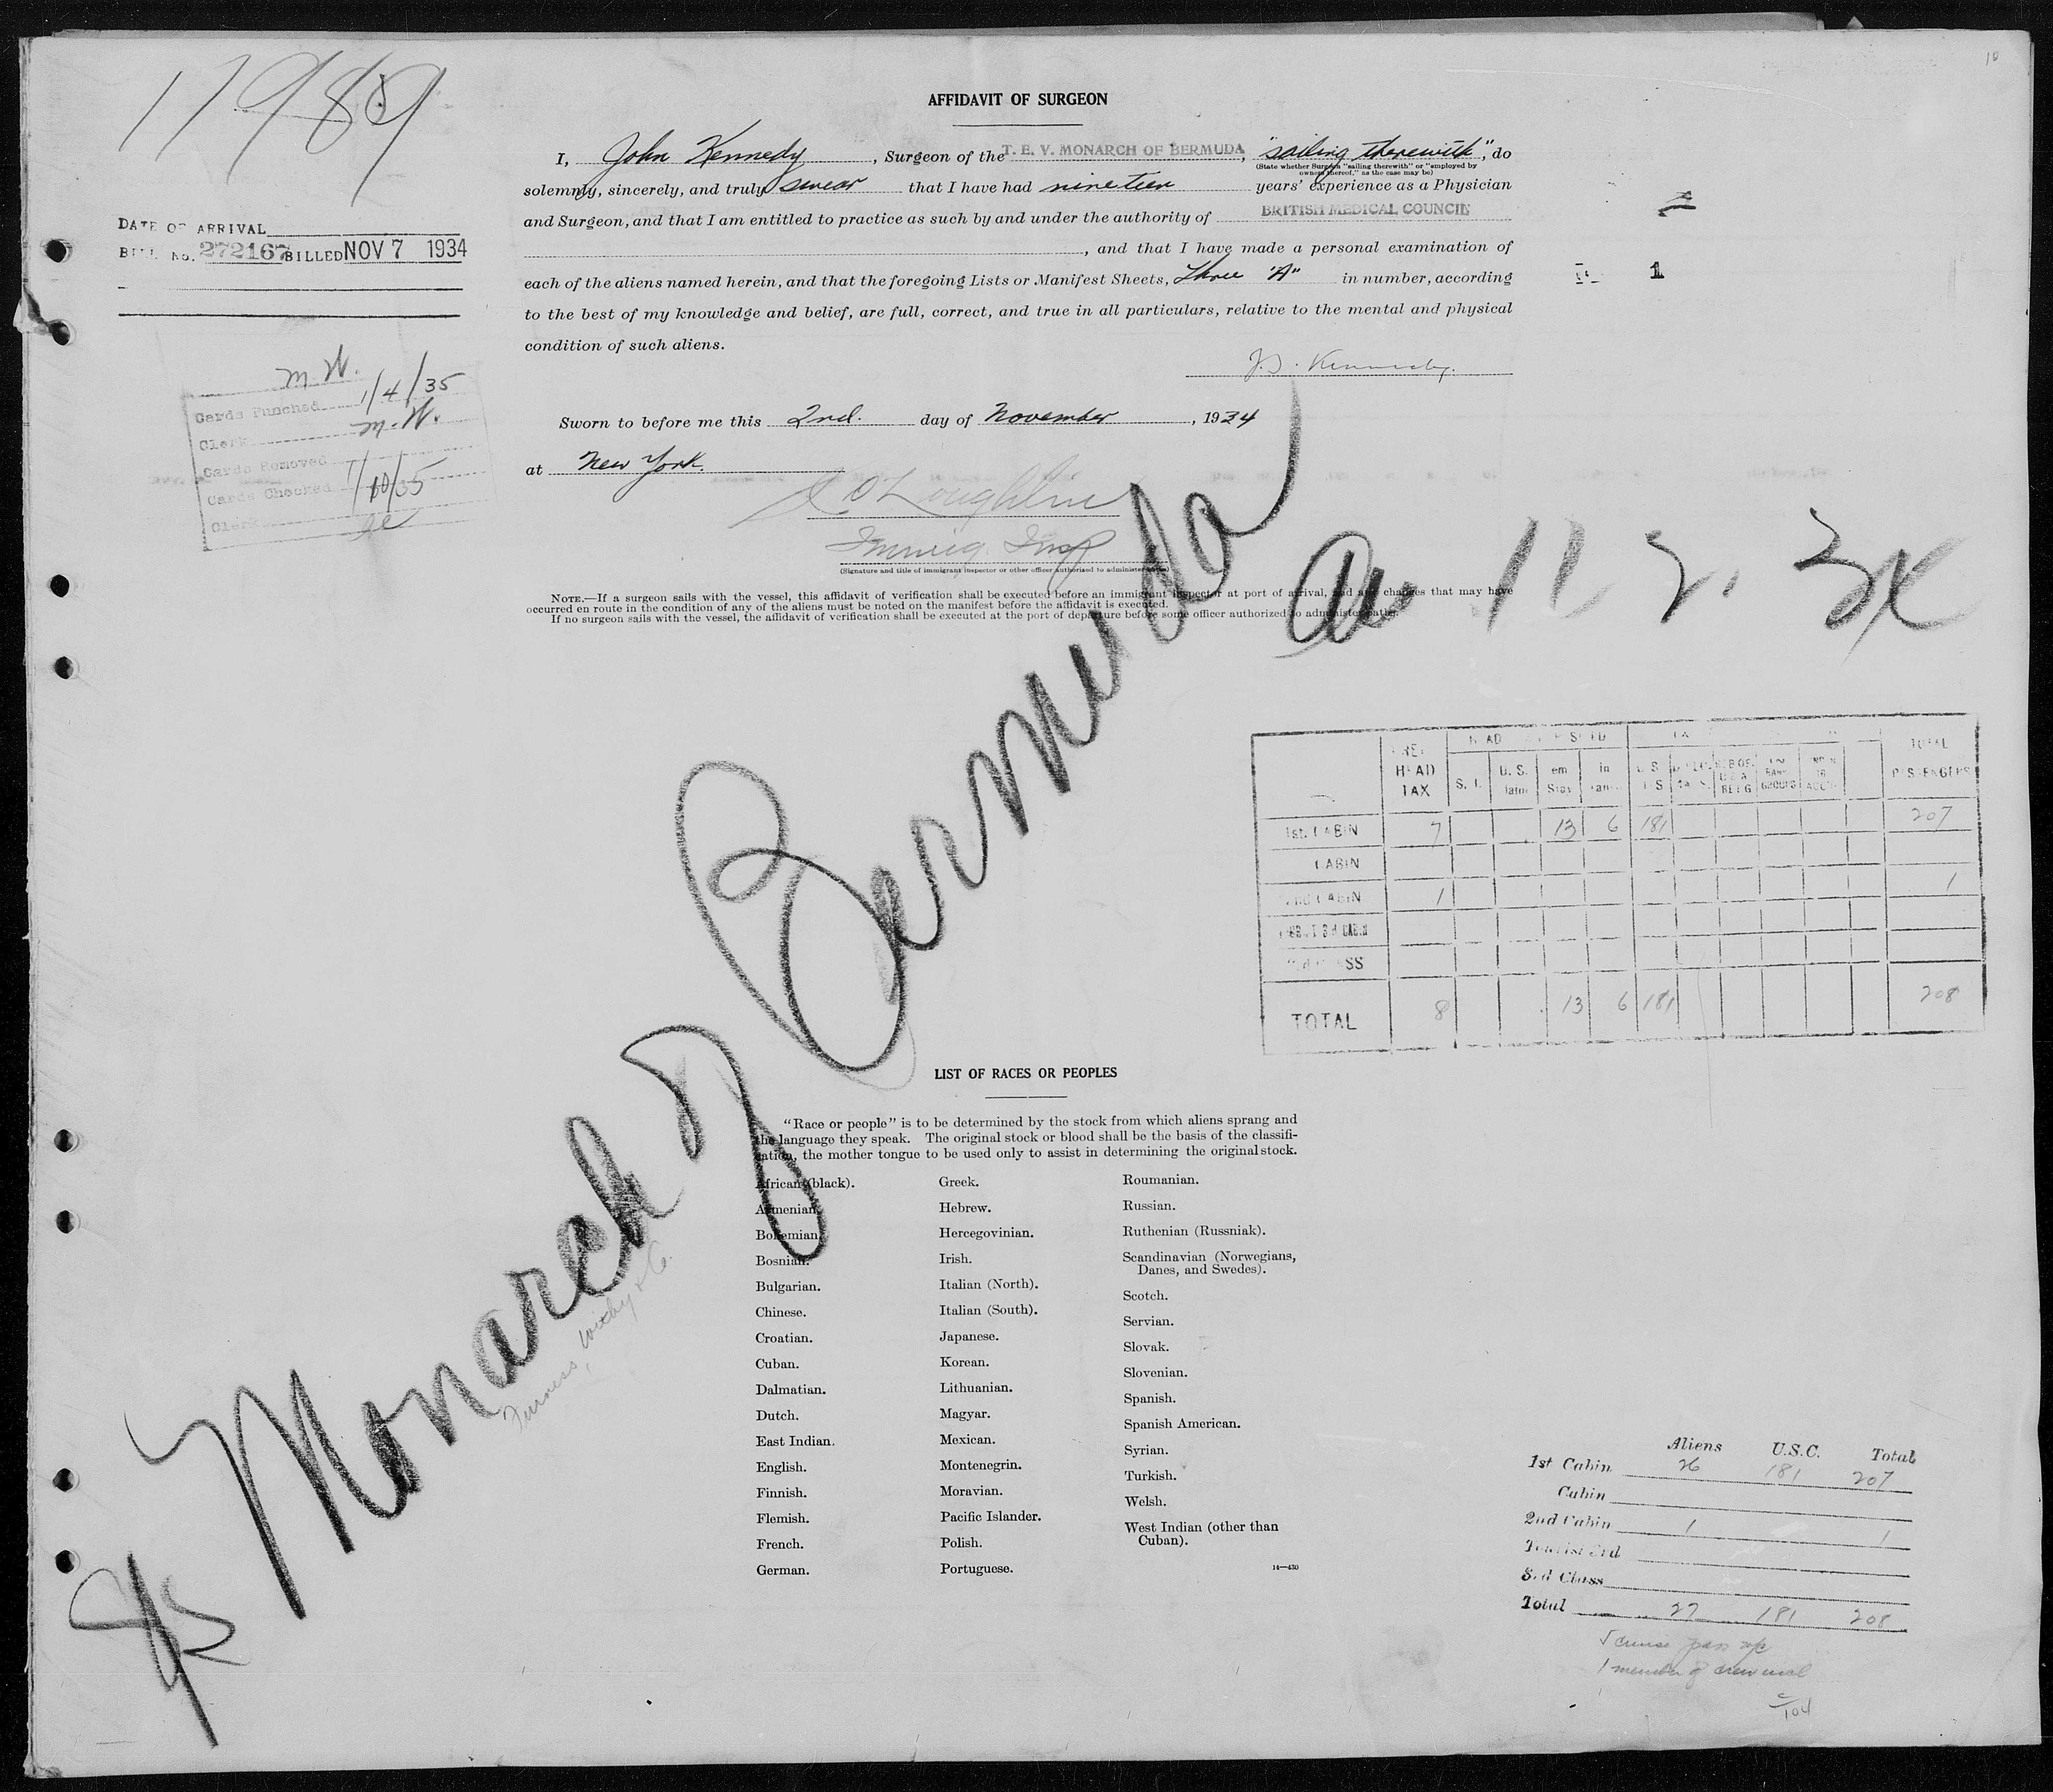 10
17989
AFFIDAVIT OF SURGEON
I, John Kennedy, Surgeon of the T. E. V. MONARCH OF BERMUDA, "sailing therewith", do
(State whether Surgeon "sailing therewith" or "employed by
owners thereof," as the case may be)
solemnly, sincerely, and truly swear that I have had nineteen years' experience as a Physician
and Surgeon, and that I am entitled to practice as such by and under the authority of BRITISH MEDICAL COUNCIL
, and that I have made a personal examination of
each of the aliens named herein, and that the foregoing Lists or Manifest Sheets, three "A" in number, according
to the best of my knowledge and belief, are full, correct, and true in all particulars, relative to the mental and physical
condition of such aliens.
J. J. Kennedy.
Sworn to before me this 2nd. day of November, 1934
at New York.
O'Loughlin
Immig. Insp
(Signature and title of immigrant inspector or other officer authorized to administer oaths)
NOTE.—If a surgeon sails with the vessel, this affidavit of verification shall be executed before an immigrant inspector at port of arrival, and any changes that may have
occurred en route in the condition of any of the aliens must be noted on the manifest before the affidavit is executed.
If no surgeon sails with the vessel, the affidavit of verification shall be executed at the port of departure before some officer authorized to administer oaths.
DATE OF ARRIVAL
BILL No. 272167 BILLED NOV 7 1934
1
M. W.
Cards Punched 1/4/35
Clerk M. W.
Cards Removed
Cards Checked 1/10/35
Clerk
Monarch of Bermuda
Furness, Withy & Co.
11 2. 34
HEAD TAX S. I. U. S. in TOTAL PASSENGERS
1st. CABIN 7 13 6 181 207
CABIN
2nd CABIN 1 1
TOTAL 8 13 6 181 208
LIST OF RACES OR PEOPLES
"Race or people" is to be determined by the stock from which aliens sprang and
the language they speak. The original stock or blood shall be the basis of the classifi-
cation, the mother tongue to be used only to assist in determining the original stock.
African (black).
Armenian.
Bohemian.
Bosnian.
Bulgarian.
Chinese.
Croatian.
Cuban.
Dalmatian.
Dutch.
East Indian.
English.
Finnish.
Flemish.
French.
German.
Greek.
Hebrew.
Hercegovinian.
Irish.
Italian (North).
Italian (South).
Japanese.
Korean.
Lithuanian.
Magyar.
Mexican.
Montenegrin.
Moravian.
Pacific Islander.
Polish.
Portuguese.
Roumanian.
Russian.
Ruthenian (Russniak).
Scandinavian (Norwegians,
Danes, and Swedes).
Scotch.
Servian.
Slovak.
Slovenian.
Spanish.
Spanish American.
Syrian.
Turkish.
Welsh.
West Indian (other than
Cuban).
14—430
Aliens U.S.C. Total
1st Cabin 26 181 207
Cabin
2nd Cabin 1 1
Tourist 3rd
3rd Class
Total 27 181 208
cruise pass
1 member of crew incl
104